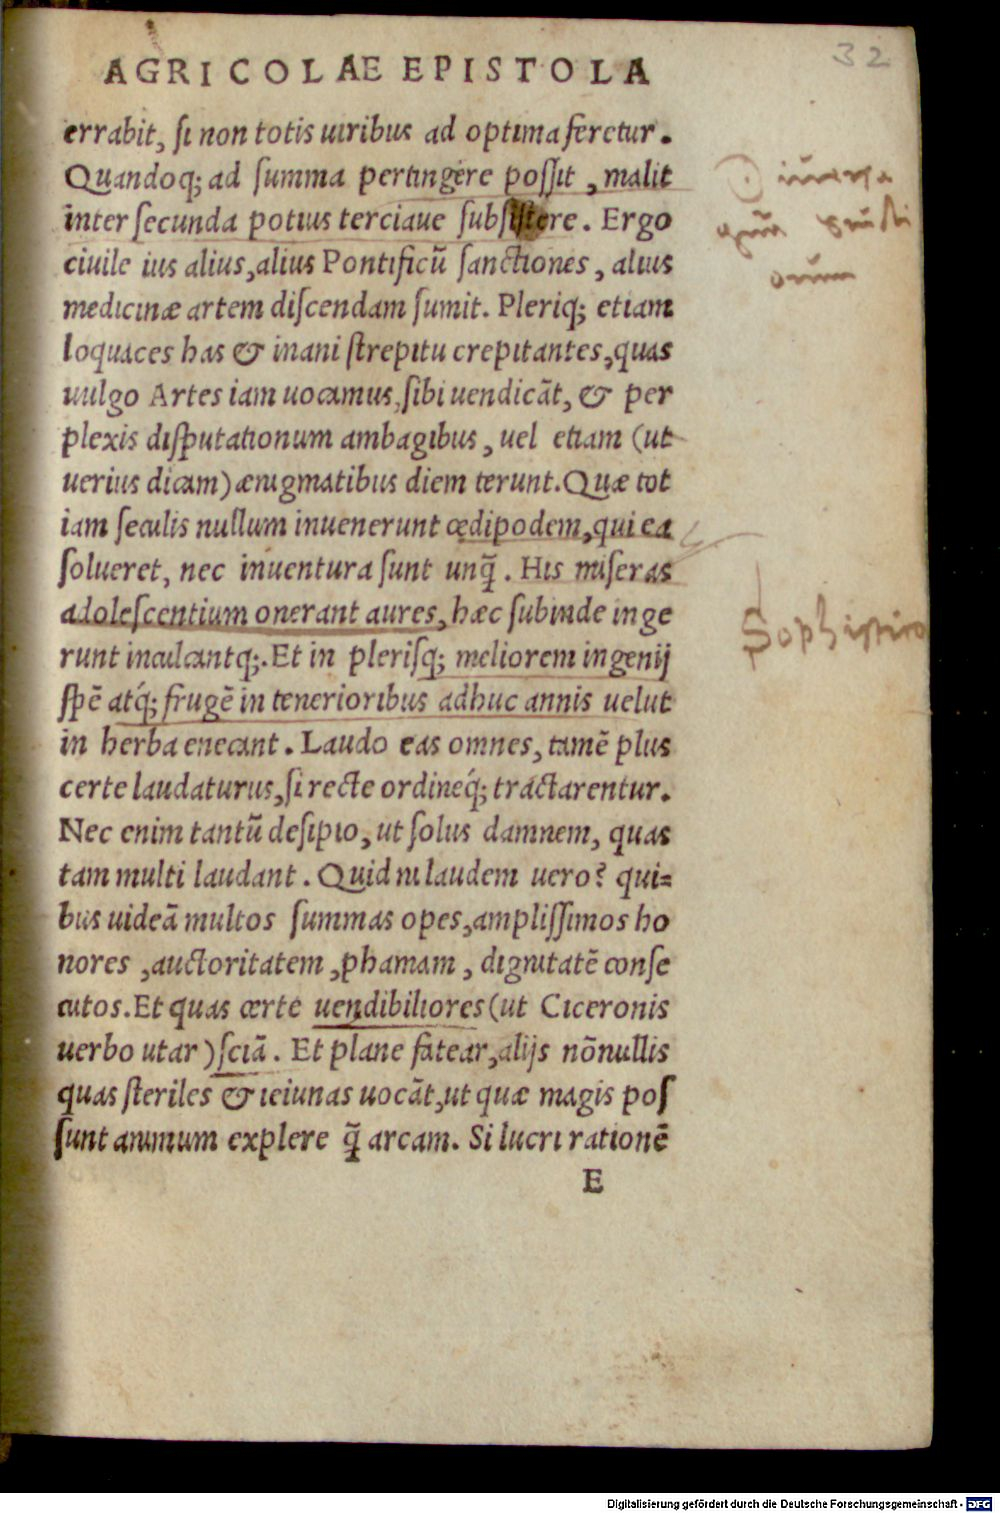 32
AGRICOLAE EPISTOLA
errabit, ſi non totis uiribus ad optima feretur.
Quandoq; ad ſumma pertingere poſſit, malit
inter ſecunda potius terciaue ſubſiſtere. Ergo
ciuile ius alius, alius Pontificũ ſanctiones, alius
medicinæ artem diſcendam ſumit. Pleriq; etiam
loquaces has & inani ſtrepitu crepitantes, quas
uulgo Artes iam uocamus, ſibi uendicãt, & per
plexis diſputationum ambagibus, uel etiam (ut
uerius dicam) ænigmatibus diem terunt. Quæ tot
iam ſeculis nullum inuenerunt œdipodem, qui ea
ſolueret, nec inuentura ſunt unq̃. His miſeras
adoleſcentium onerant aures, hæc ſubinde inge
runt inculcantq;. Et in pleriſq; meliorem ingenij
ſpẽ atq́; frugẽ in tenerioribus adhuc annis uelut
in herba enecant. Laudo eas omnes, tamẽ plus
certe laudaturus, ſi recte ordineq́; tractarentur.
Nec enim tantũ deſipio, ut ſolus damnem, quas
tam multi laudant. Quid ni laudem uero? qui=
bus uideã multos ſummas opes, ampliſſimos ho
nores, auctoritatem, phamam, dignitatẽ conſe
cutos. Et quas certe uendibiliores (ut Ciceronis
uerbo utar) ſciã. Et plane fatear, alijs nõnullis
quas ſteriles & ieiunas uocãt, ut quæ magis poſ
ſunt animum explere q̃ arcam. Si lucri rationẽ
E
Digitalisierung gefördert durch die Deutsche Forschungsgemeinschaft - DFG